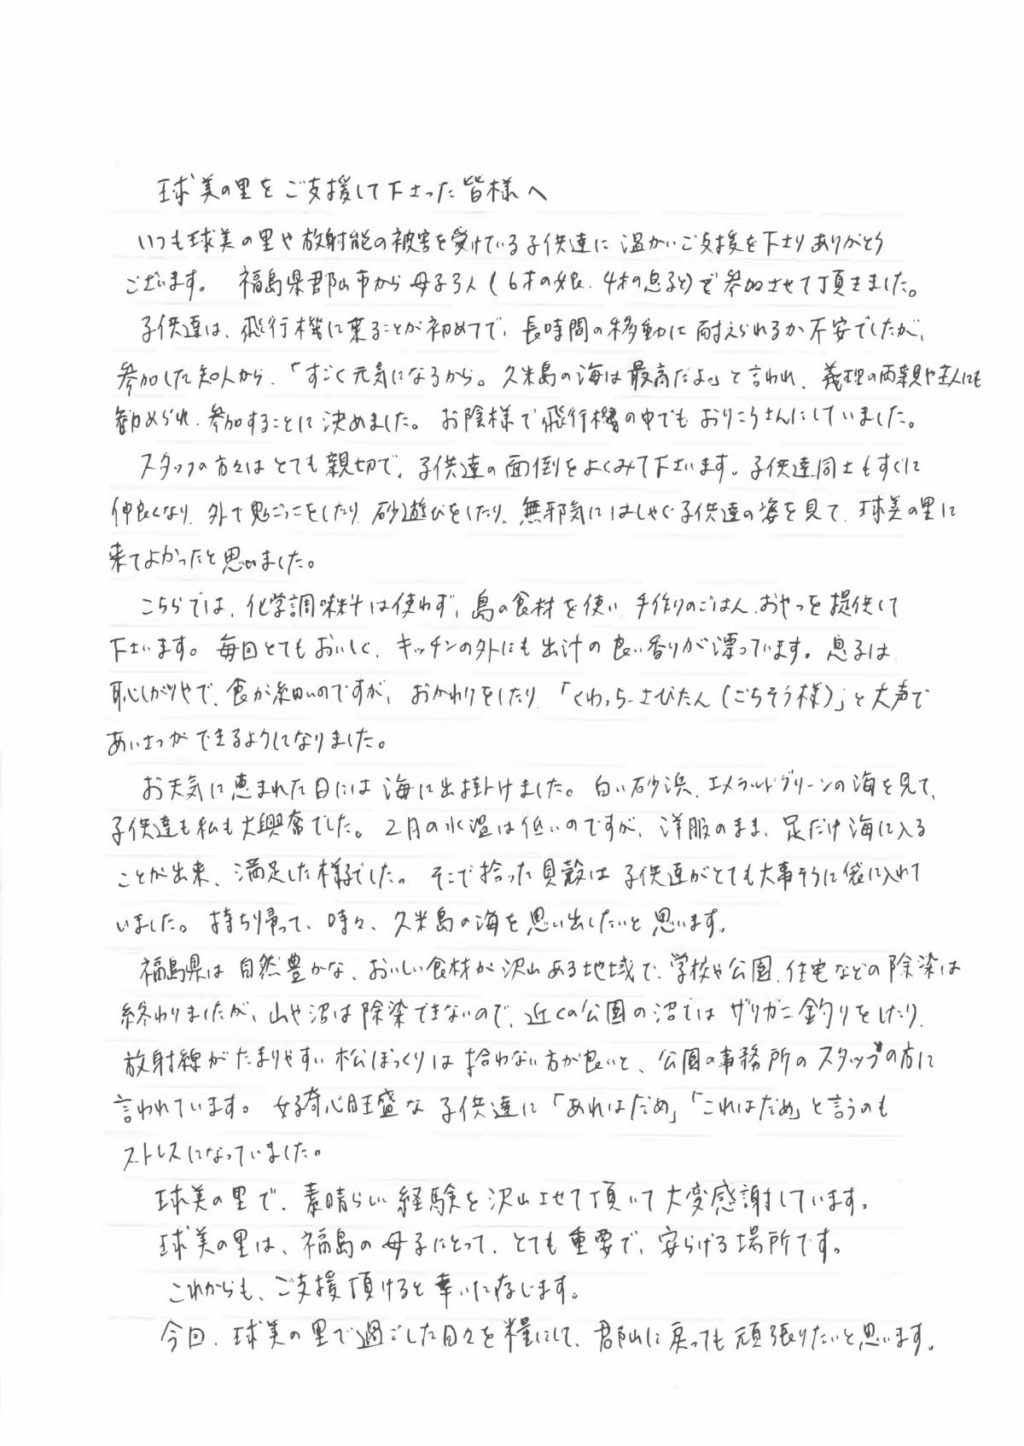 球美の里をご支援して下さった皆様へ
いつも球美の里や放射能の被害を受けている子供達に温かいご支援を下さりありがとう
ございます。 福島県郡山市から母子3人(6才の娘、4才の息子と)で参加させて頂きました。
子供達は、飛行機に乗ることが初めてで、長時間の移動に耐えられるか不安でしたが、
参加した知人から、「すごく元気になるから。久米島の海は最高だよ。」と言われ、義理の両親や主人にも
勧められ、参加することに決めました。 お陰様で飛行機の中でもおりこうさんにしていました。
スタッフの方々はとても親切で、子供達の面倒をよくみて下さいます。子供達同士もすぐに
仲良くなり、外で鬼ごっこをしたり、砂遊びをしたり、無邪気にはしゃぐ子供達の姿を見て、球美の里に
来てよかったと思いました。
こちらでは、化学調味料は使わず、島の食材を使い手作りのごはん、おやつを提供して
下さいます。毎回とてもおいしく、キッチンの外にも出汁の良い香りが漂っています。息子は、
恥しがりやで、食が細いのですが、おかわりをしたり、「くわっちーさびたん(ごちそう様)」と大声で
あいさつができるようになりました。
お天気に恵まれた日には海に出掛けました。白い砂浜、エメラルドグリーンの海を見て、
子供達も私も大興奮でした。2月の水温は低いのですが、洋服のまま、足だけ海に入る
ことが出来、満足した様子でした。そこで拾った貝殻は子供達がとても大事そうに袋に入れて
いました。持ち帰って、時々、久米島の海を思い出したいと思います。
福島県は自然豊かな、おいしい食材が沢山ある地域で、学校や公園、住宅などの除染は
終わりましたが、山や沼は除染できないので、近くの公園の沼ではザリガニ釣りをしたり、
放射線がたまりやすい松ぼっくりは拾わない方が良いと、公園の事務所のスタッフの方に
言われています。好奇心旺盛な子供達に「あれはだめ」「これはだめ」と言うのも
ストレスになっていました。
球美の里で、素晴らしい経験を沢山させて頂いて大変感謝しています。
球美の里は、福島の母子にとって、とても重要で、安らげる場所です。
これからも、ご支援頂けると幸いに存じます。
今回、球美の里で過ごした日々を糧にして、郡山に戻っても頑張りたいと思います。